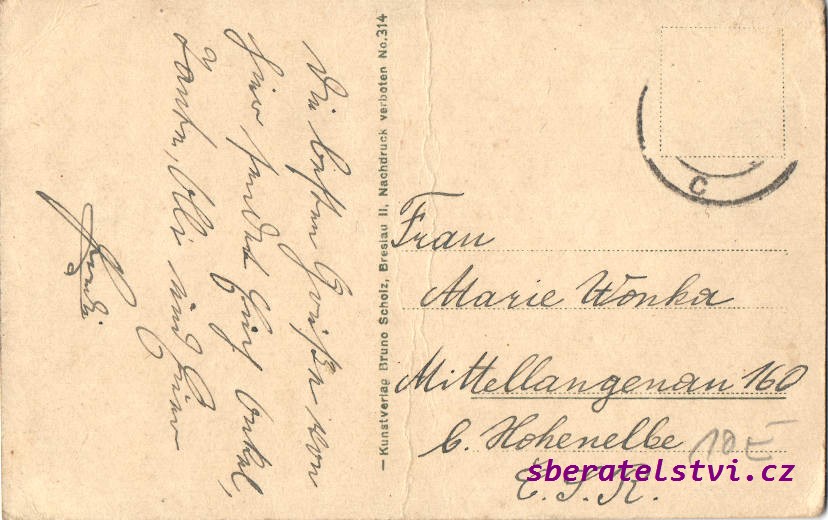 Die besten Grüße von
hier sendet Euch Onkel,
Tante, Olli und
— Kunstverlag Bruno Scholz, Breslau II, Nachdruck verboten No. 314
C
Frau
Marie Wonka
Mittellangenau 160
b. Hohenelbe
Č.S.R.
10
sberatelstvi.cz